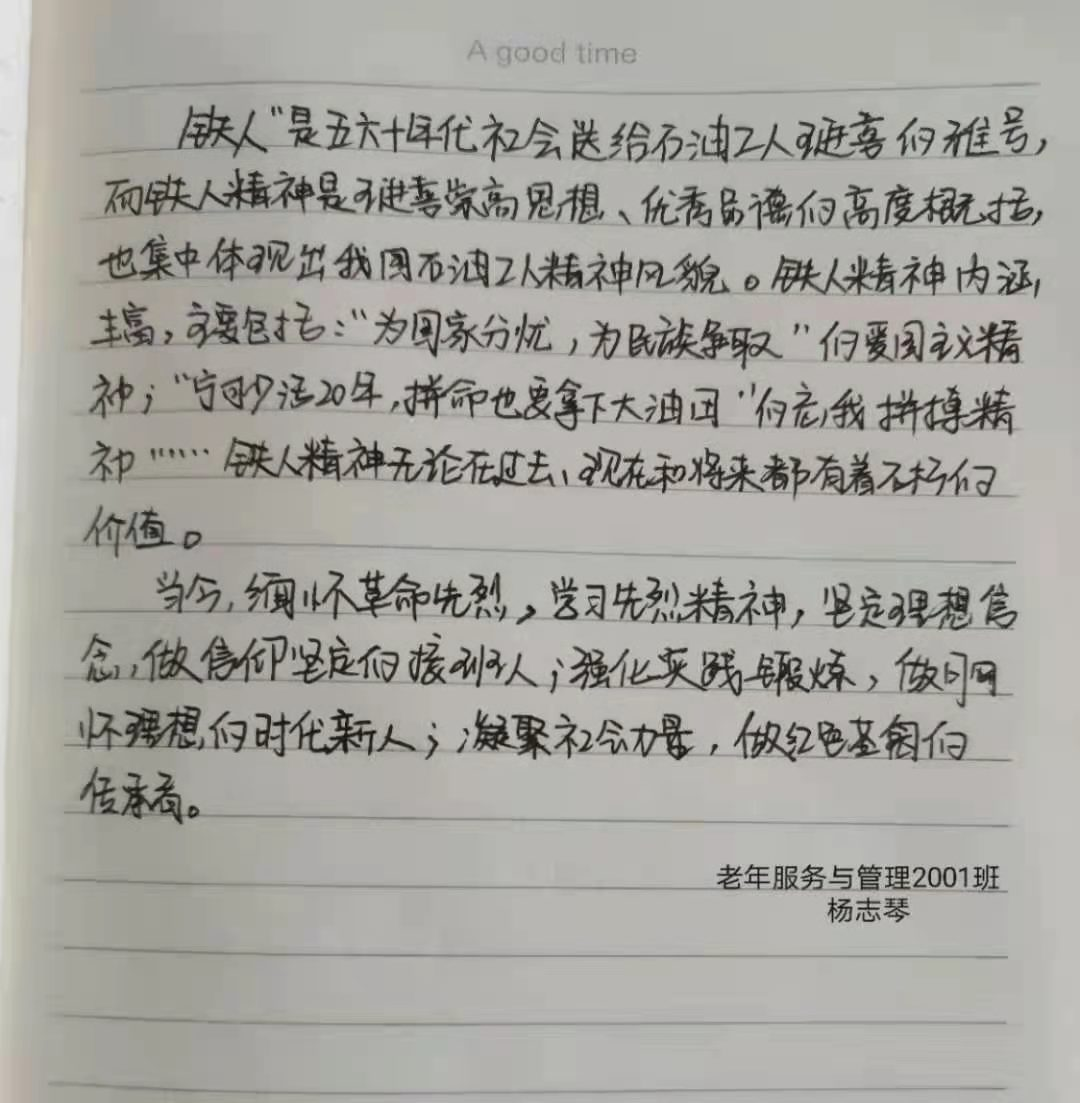 A good time
铁人”是五六十年代社会送给石油工人王进喜的雅号,
而铁人精神是王进喜崇高思想、优秀品德的高度概括,
也集中体现出我国石油工人精神风貌。铁人精神内涵
丰富,主要包括:“为国家分忧,为民族争取”的爱国主义精
神;“宁可少活20年,拼命也要拿下大油田”的忘我拼搏精
神…… 铁人精神无论在过去、现在和将来都有着不朽的
价值。
当今,缅怀革命先烈,学习先烈精神,坚定理想信
念,做信仰坚定的接班人;强化实践锻炼,做胸
怀理想的时代新人;凝聚社会力量,做红色基因的
传承者。
老年服务与管理2001班
杨志琴